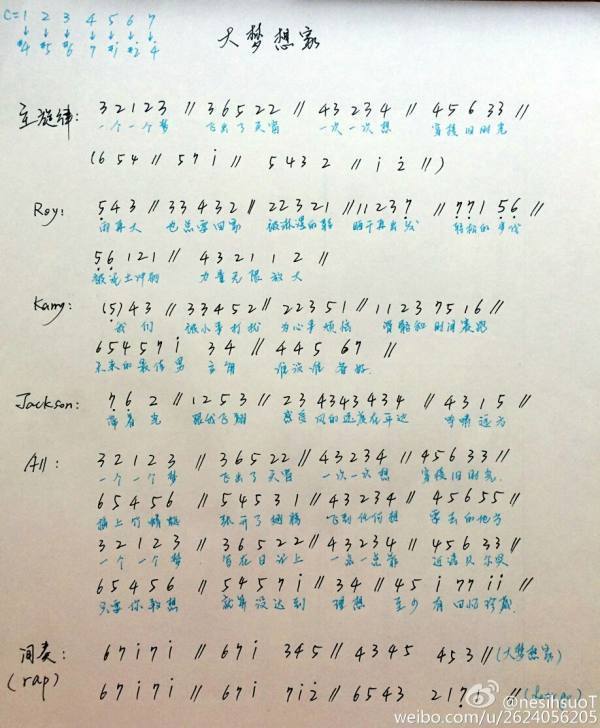 C=1 2 3 4 5 6 7
↓ ↓ ↓ ↓ ↓ ↓ ↓
#4 #5 #6 7 #1 #2 4
大梦想家
主旋律: 3 2 1 2 3 // 3 6 5 2 2 // 4 3 2 3 4 // 4 5 6 3 3 //
一个一个梦 飞出了天窗 一次一次想 穿梭旧时光
(6 5 4 // 5 7 i // 5 4 3 2 // i 2̇ //)
Roy: 5̣ 4 3 // 3 3 4 3 2 // 2 2 3 2 1 // 1 1 2 3 7̣ // 7̣ 7̣ 1 5̣ 6̣ //
雨再大 也总要回家 被淋湿的鞋 晒干再出发
5̣ 6̣ 1 2 1 // 4 3 2 1 1 2 //
力量无限放大
Kamy: (5̣) 4 3 // 3 3 4 5 2 // 2 2 3 5 1 // 1 1 2 3 7 5 1 6 //
我们 被小事打扰 为心事烦恼
6 5 4 5 7 i 3 4 // 4 4 5 6 7 //
未来的最佳男 主角 谁没谁看好
Jackson: 7̣ 6̣ 2 // 1 2 5 3 // 2 3 4 3 4 3 4 3 4 // 4 3 1 5 //
跟我飞翔 感受风的速度在耳边 呼啸远方
All: 3 2 1 2 3 // 3 6 5 2 2 // 4 3 2 3 4 // 4 5 6 3 3 //
一个一个梦 飞出了天窗 一次一次想 穿梭旧时光
6 5 4 5 6 // 5 4 5 3 1 // 4 3 2 3 4 // 4 5 6 5 5 //
插上竹蜻蜓 张开了翅膀 飞到任何想 要去的地方
3 2 1 2 3 // 3 6 5 2 2 // 4 3 2 3 4 // 4 5 6 3 3 //
一个一个梦 写在日记上 一点一点靠 近诺贝尔奖
6 5 4 5 6 // 5 4 5 7 i // 3 4 // 4 5 i 7 7 i i //
只要你敢想 就算没达到 理想 至少有回忆珍藏
间奏: 6 7 i 7 i // 6 7 i 3 4 5 // 4 3 4 5 4 5 3 // (大梦想家)
(rap) 6 7 i 7 i // 6 7 i 7 i 2̇ // 6 5 4 3 2 1 7̣ 1 //
@nesihsuoT
weibo.com/u/2624056205